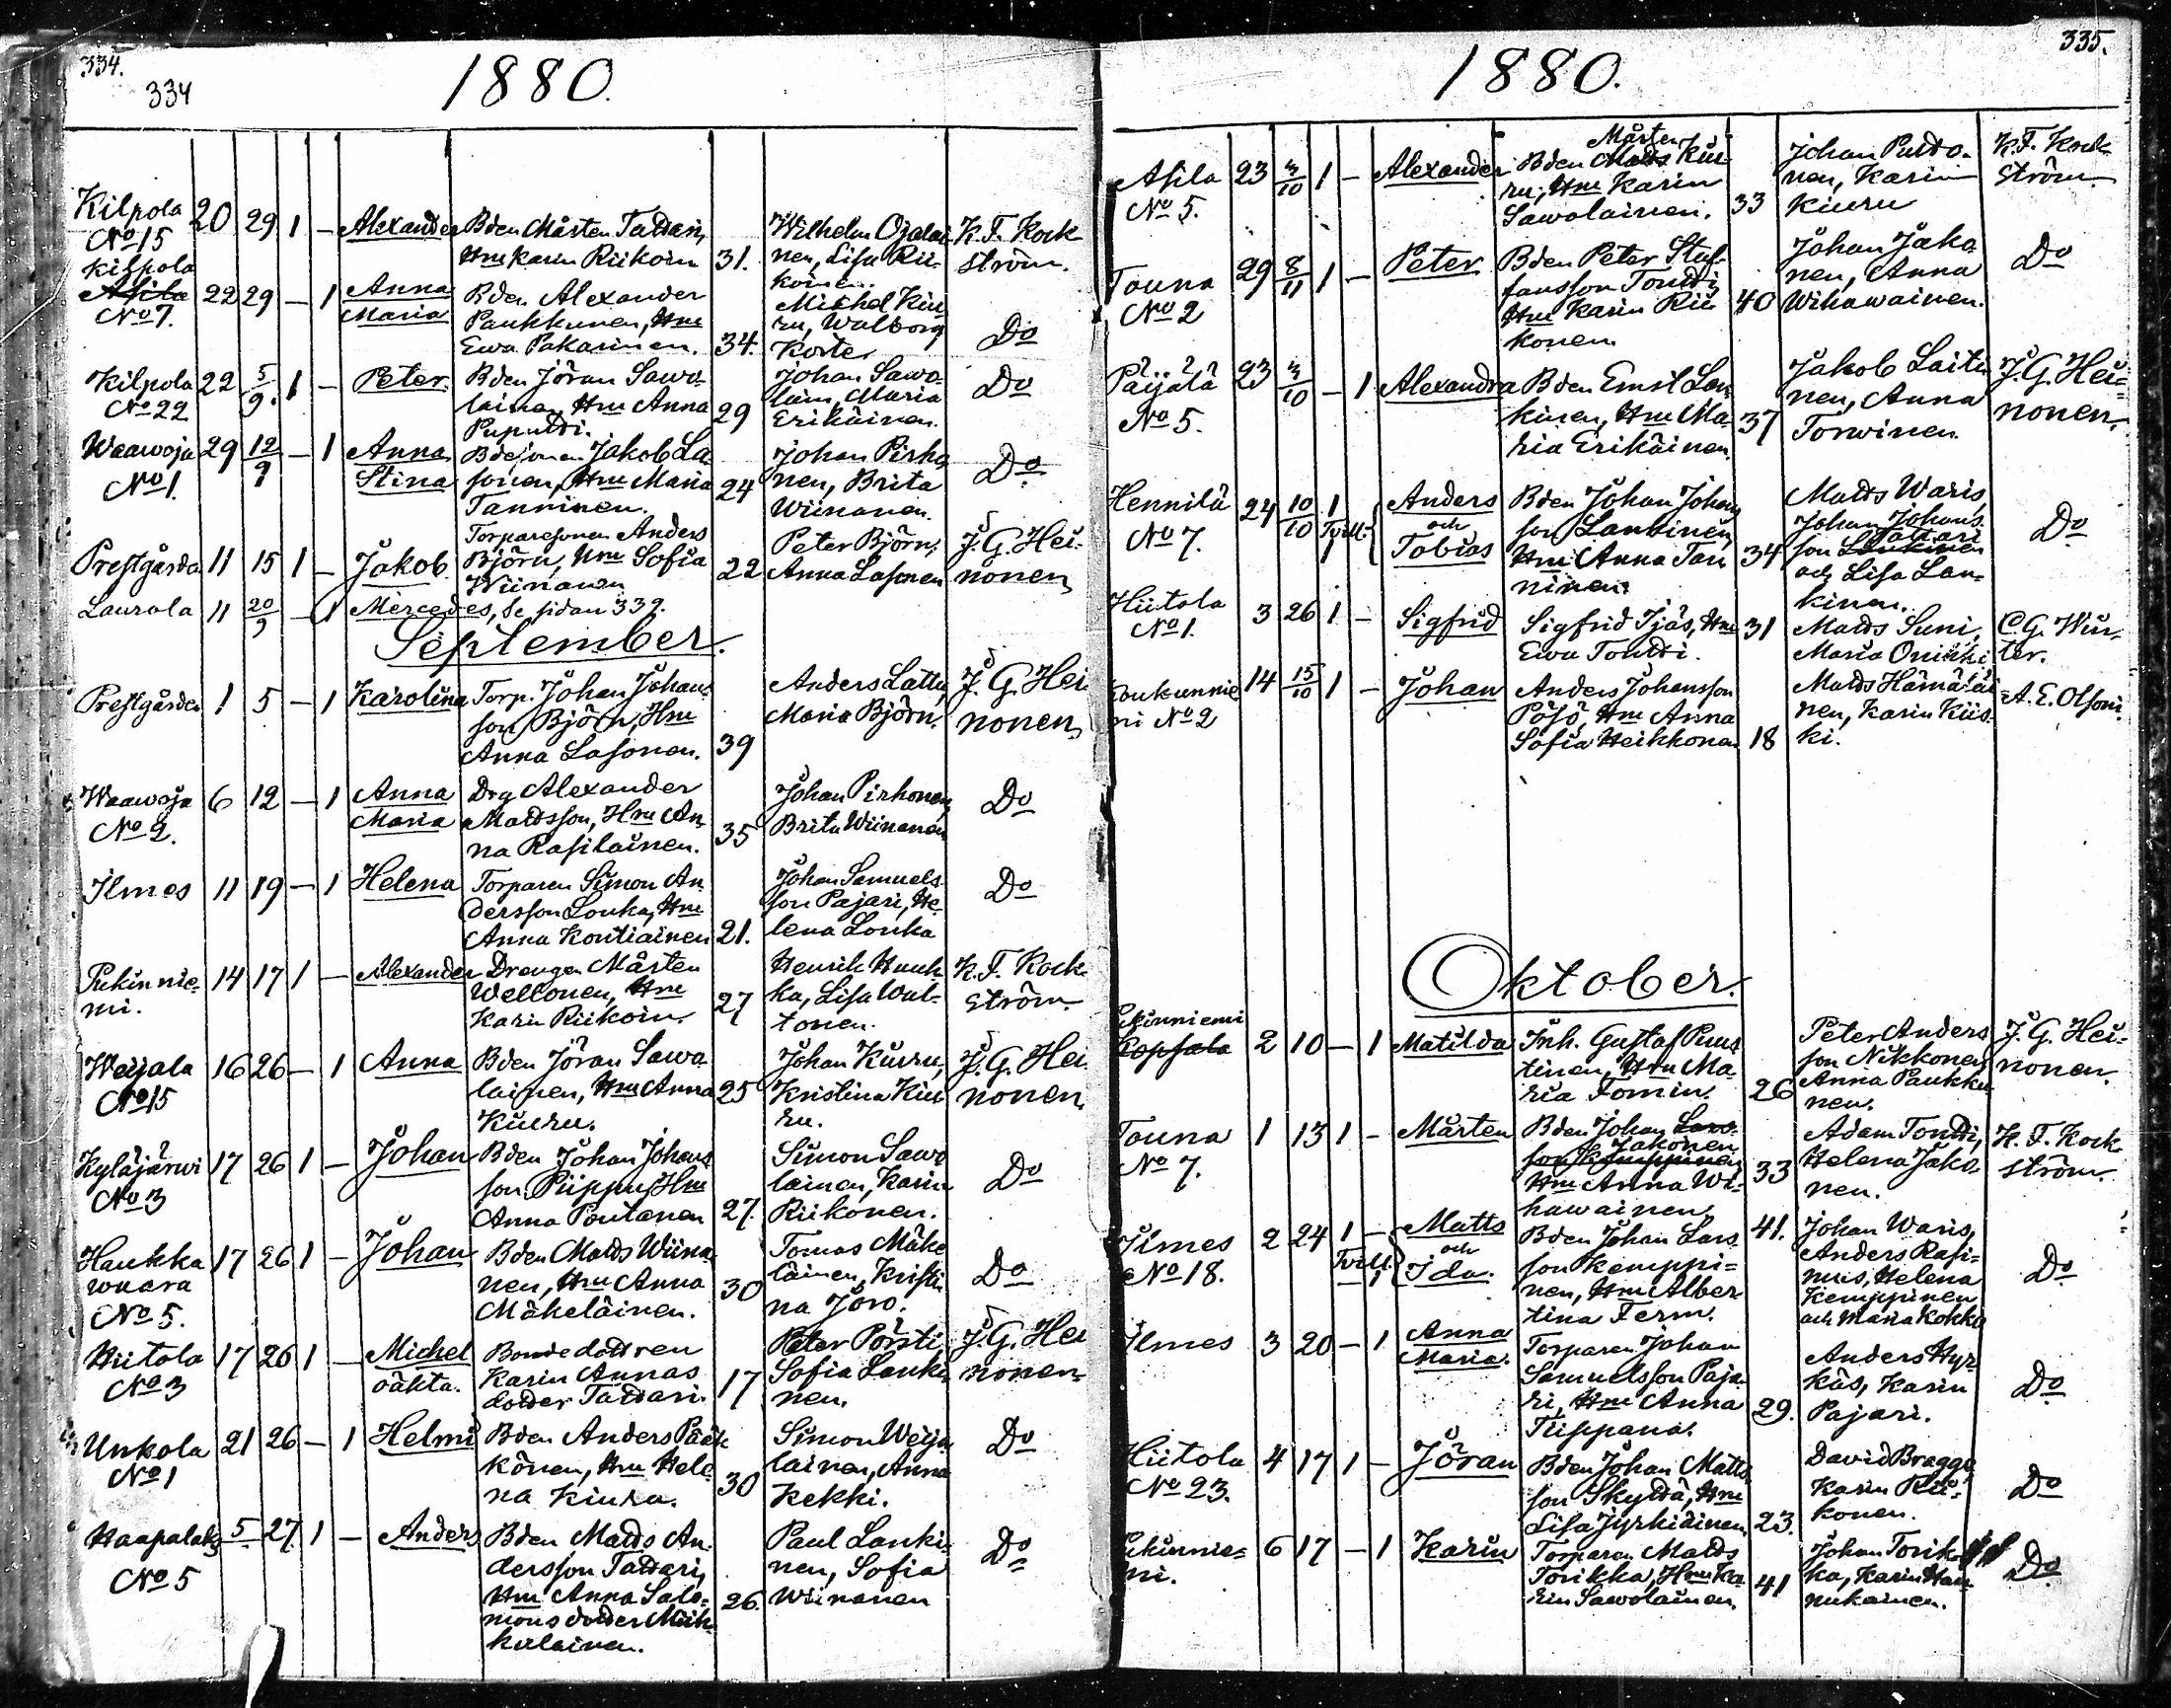 334.
334
1880.
Kilpola
No 15
20 29 1 — Alexander
Bden Mårten Tattari,
Hm Karin Riikoin 31.
Wilhelm Ojalai
nen, Lisa Rii-
konen.
K. F. Kock
ström.
Kilpola
Asila
No 7.
22 29 — 1 Anna
Maria
Bden Alexander
Paukkunen, Hm
Ewa Pakarinen. 34.
Michel Kiu
ru, Walborg
Korte
Do
Kilpola
No 22
22 5/9. 1 — Peter.
Bden Jöran Sawo-
lainen, Hm Anna 29
Puputti.
Johan Sawo-
lain, Maria
Erikäinen.
Do
Waawoja
No 1.
29 12/9 — 1 Anna
Stina
Bdesonen Jakob La
sonen, Hm Maria 24
Tanninen.
Johan Pirho
nen, Brita
Wiinanen.
Do
Prestgården 11 15 1 — Jakob
Torparesonen Anders
Björn, Hm Sofia 22
Wiinanen
Peter Björn,
Anna Lasonen
J. G. Hei-
nonen
Laurola 11 20/9 — 1 Mercedes, se sidan 339.
September.
Prestgården 1 5 — 1 Karolina
Torp. Johan Johans
son Björn, Hm
Anna Lasonen. 39
Anders Lattu,
Maria Björn.
J. G. Hei
nonen
Waawoja
No 2.
6 12 — 1 Anna
Maria
Drg Alexander
Mattsson, Hm An-
na Rasilainen. 35
Johan Pirhonen,
Brita Wiinanen
Do
Ilmes 11 19 — 1 Helena
Torparen Simon An-
dersson Louka, Hm
Anna Kontiainen 21.
Johan Samuels
son Pajari, He-
lena Louka
Do
Pukinnie-
mi.
14 17 1 — Alexander
Drengen Mårten
Wellonen, Hm
Karin Riikoin. 27
Henrik Huuh
ka, Lisa Wal-
tonen.
K. F. Kock
ström
Weijala
No 15
16 26 — 1 Anna
Bden Jöran Sawo
lainen, Hm Anna 25
Kiuru.
Johan Kiuru,
Kristina Kiu
ru.
J. G. Hei
nonen
Kyläjärwi
No 3
17 26 1 — Johan
Bden Johan Johans
son Piippu, Hm
Anna Pontanen 27.
Simon Sawo
lainen, Karin
Riikonen.
Do
Haukka
waara
No 5.
17 26 1 — Johan
Bden Matts Wiina-
nen, Hm Anna 30
Mäkeläinen.
Tomas Mäke
läinen, Kristi
na Joro.
Do
Hiitola
No 3
17 26 1 — Michel
oäkta.
Bondedottren
Karin Annas
dotter Tattari. 17
Peter Pörsti
Sofia Lanki
nen.
J. G. Hei
nonen
Unkola
No 1
21 26 — 1 Helmi
Bden Anders Pääk
könen, Hm Hele-
na Kiuru. 30
Simon Weija
lainen, Anna
Kekki.
Do
Haapalaks
No 5
5 27. 1 — Anders
Bden Matts An-
dersson Tattari,
Hm Anna Salo-
mons dotter Miik-
kulainen. 26.
Paul Lanki
nen, Sofia
Wiinanen
Do
335.
1880.
Asila
No 5.
23 3/10 1 — Alexander
Mårten
Bden Matts Kiu-
ru, Hm Karin
Sawolainen. 33
Johan Putto-
nen, Karin
Kiuru
K. F. Kock-
ström.
Touna
No 2
29 8/11 1 — Peter
Bden Peter Staf-
fansson Tontti,
Hm Karin Rii
konen. 40
Johan Jako
nen, Anna
Wihawainen.
Do
Päijälä
No 5.
23 3/10 — 1 Alexandra
Bden Emil Lan
kinen, Hm Ma-
ria Erikäinen. 37
Jakob Laiti
nen, Anna
Torwinen.
J. G. Hei=
nonen.
Hennilä
No 7.
24 10/10 1 Tvill.
Anders
och
Tobias
Bden Johan Johans
son Lankinen,
Hm Anna Tan 34
ninen.
Matts Waris,
Johan Johans
Tattari
son Lankinen
och Lisa Lan-
kinen.
Do
Hiitola
No 1.
3 26 1 — Sigfrid
Sigfrid Ijäs, Hm 31
Ewa Tontti.
Matts Suni,
Maria Oninki
C. G. Win-
ter.
Koukunnie
mi No 2
14 15/10 1 — Johan
Anders Johansson
Pösö, Hm Anna
Sofia Heikkonen 18
Matts Hämäläi
nen, Karin Kiis-
ki.
A. E. Olsoni.
Oktober.
Pukinniemi
Kopsala
2 10 — 1 Matilda
Inh. Gustaf Puus
tinen, Hm Ma-
ria Tomin. 26
Peter Anders
son Nikkonen,
Anna Paukku
nen.
J. G. Hei-
nonen.
Touna
No 7.
1 13 1 — Mårten
Bden Johan Lars-
Jakonen
son Kemppinen
Hm Anna Wi- 33
hawainen,
Adam Tontti,
Helena Jako
nen.
K. F. Kock
ström.
Ilmes
No 18.
2 24 1 — Tvill.
Matts
och
Ida.
Bden Johan Lars 41.
son Kemppi=
nen, Hm Alber
tina Ferm.
Johan Waris,
Anders Rasi=
mus, Helena
Kemppinen
och Maria Kokko
Do
Ilmes 3 20 — 1 Anna
Maria.
Torparen Johan
Samuelsson Paja-
ri, Hm Anna 29.
Tiippana.
Anders Hyr
käs, Karin
Pajari.
Do
Hiitola
No 23.
4 17 1 — Jöran
Bden Johan Matts
son Skyttä, Hm
Lisa Jyrkiäinen 23.
David Bragge
Karin Rii-
konen.
Do
Pukinnie=
mi.
6 17 — 1 Karin
Torparen Matts
Torikka, Hm Ka-
rin Sawolainen. 41
Johan Torik
ka, Karin Han
nukainen.
Do